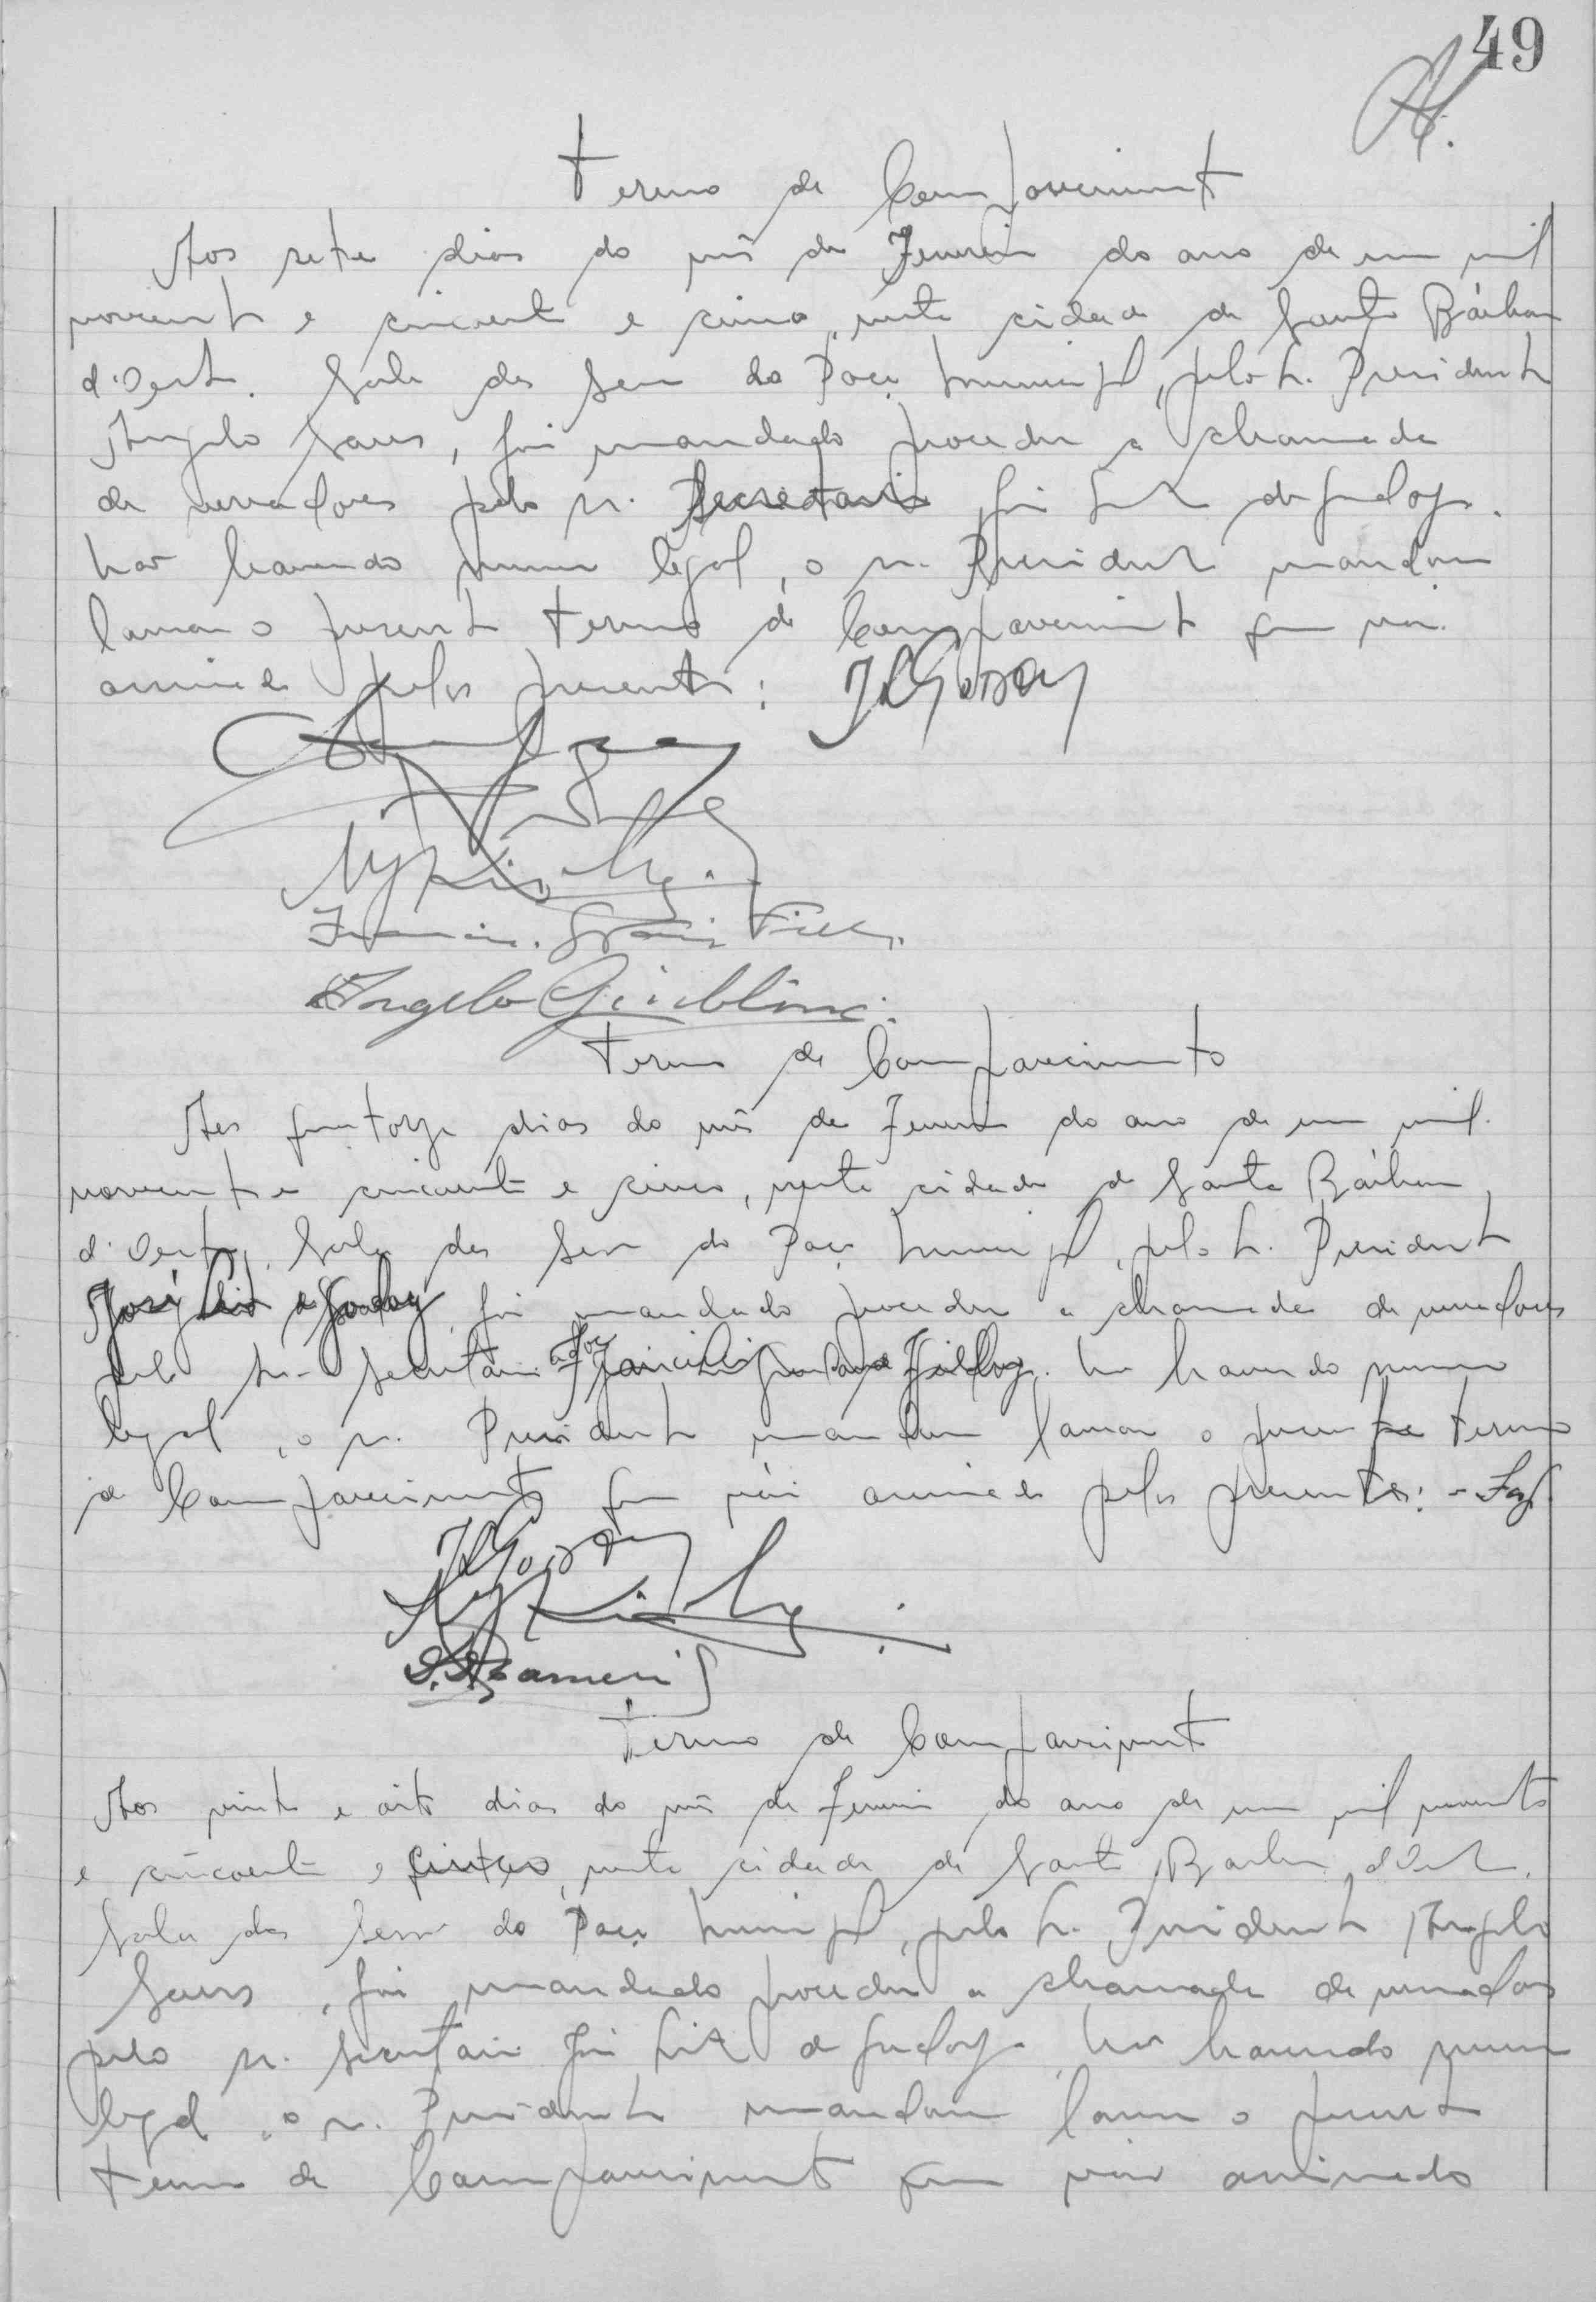 49
Termo de Comparecimento
Aos sete dias do mês de Fevereiro do ano de um mil
novecentos e cincoenta e cinco, nesta cidade de Santa Bárbara
d'Oeste. Sala das Sessões do Paço Municipal, pelo Sr. Presidente
Angelo Sans, foi mandado proceder a chamada
de vereadores pelo sr. Secretario José Luiz de Godoy.
Não havendo numero legal, o sr. Presidente mandou
lavrar o presente termo de Comparecimento que vai
assinado pelos presentes: JLGodoy
Angelo Giubbina.
Termo de Comparecimento
Aos quatorze dias do mês de Fevereiro do ano de um mil
novecentos e cincoenta e cinco, nesta cidade de Santa Bárbara
d'Oeste, Sala das Sessões do Paço Municipal, pelo Sr. Presidente
José Luiz de Godoy, foi mandado proceder a chamada de vereadores
pelo Sr. Secretário ad hoc. Não havendo numero
legal, o sr. Presidente mandou lavrar o presente termo
de Comparecimento que vai assinado pelos presentes: -
JLGodoy
Termo de Comparecimento
Aos vinte e oito dias do mês de Fevereiro do ano de um mil novecentos
e cincoenta e cinco, nesta cidade de Santa Barbara d'Oeste.
Sala das Sessões do Paço Municipal, pelo Sr. Presidente Angelo
Sans, foi mandado proceder a chamada de vereadores
pelo sr. Secretario José Luiz de Godoy. Não havendo numero
legal, o sr. Presidente mandou lavrar o presente
termo de Comparecimento que vai assinado